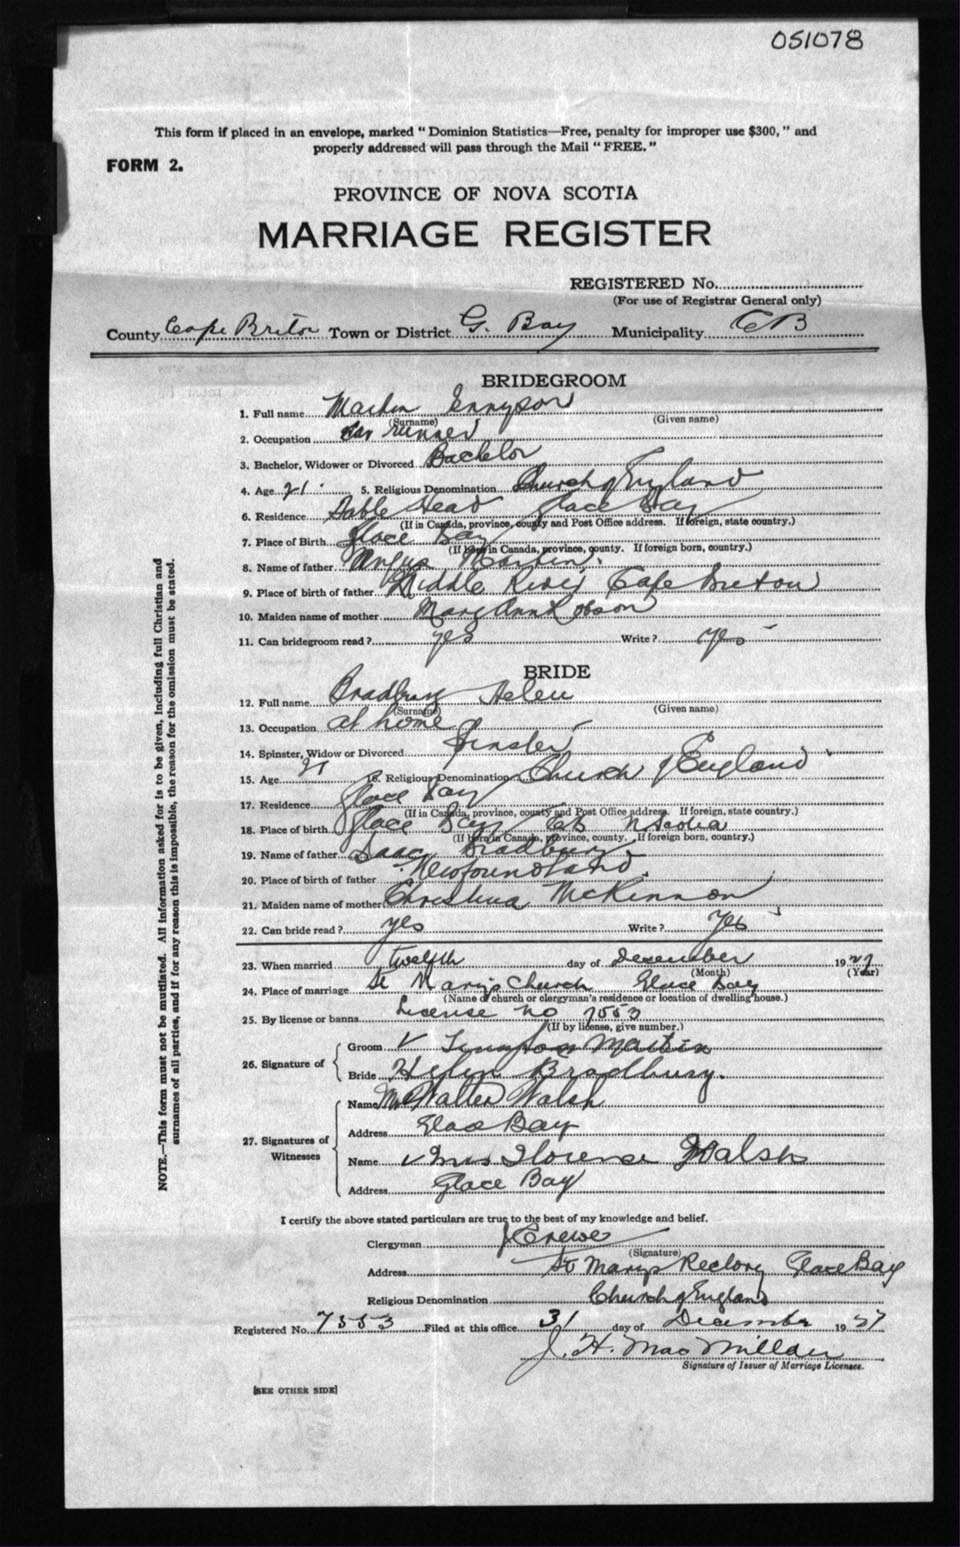 051078
This form if placed in an envelope, marked "Dominion Statistics—Free, penalty for improper use $300," and
properly addressed will pass through the Mail "FREE."
FORM 2.
PROVINCE OF NOVA SCOTIA
MARRIAGE REGISTER
REGISTERED No.
(For use of Registrar General only)
County Cape Breton Town or District G. Bay Municipality CB
BRIDEGROOM
1. Full name Martin
(Surname) (Given name)
2. Occupation runner
3. Bachelor, Widower or Divorced Bachelor
4. Age 21 5. Religious Denomination Church of England
6. Residence Table Head Glace Bay
(If in Canada, province, county and Post Office address. If foreign, state country.)
7. Place of Birth Glace Bay
(If born in Canada, province, county. If foreign born, country.)
8. Name of father Angus Martin
9. Place of birth of father Middle River Cape Breton
10. Maiden name of mother Mary Ann Robson
11. Can bridegroom read? yes Write? yes
BRIDE
12. Full name Bradbury Helen
(Surname) (Given name)
13. Occupation at home
14. Spinster, Widow or Divorced Spinster
15. Age 21 16. Religious Denomination Church of England
17. Residence Glace Bay
(If in Canada, province, county and Post Office address. If foreign, state country.)
18. Place of birth Glace Bay CB N Scotia
(If born in Canada, province, county. If foreign born, country.)
19. Name of father Isaac Bradbury
20. Place of birth of father Newfoundland
21. Maiden name of mother Christina McKinnon
22. Can bride read? yes Write? Yes
23. When married twelfth day of December 1927
(Month) (Year)
24. Place of marriage St Mary's Church Glace Bay
(Name of church or clergyman's residence or location of dwelling house.)
25. By license or banns License no 7553
(If by license, give number.)
26. Signature of
Groom Martin
Bride Helen Bradbury.
27. Signatures of Witnesses
Name Walter Walsh
Address Glace Bay
Name Mrs Florence Walsh
Address Glace Bay
I certify the above stated particulars are true to the best of my knowledge and belief.
Clergyman Crewe
(Signature)
Address St Marys Rectory Glace Bay
Religious Denomination Church of England
Registered No. 7553 Filed at this office 31 day of December 1927
J. H. MacMillan
Signature of Issuer of Marriage Licenses.
[SEE OTHER SIDE]
NOTE.—This form must not be mutilated. All information asked for is to be given, including full Christian and
surnames of all parties, and if for any reason this is impossible, the reason for the omission must be stated.